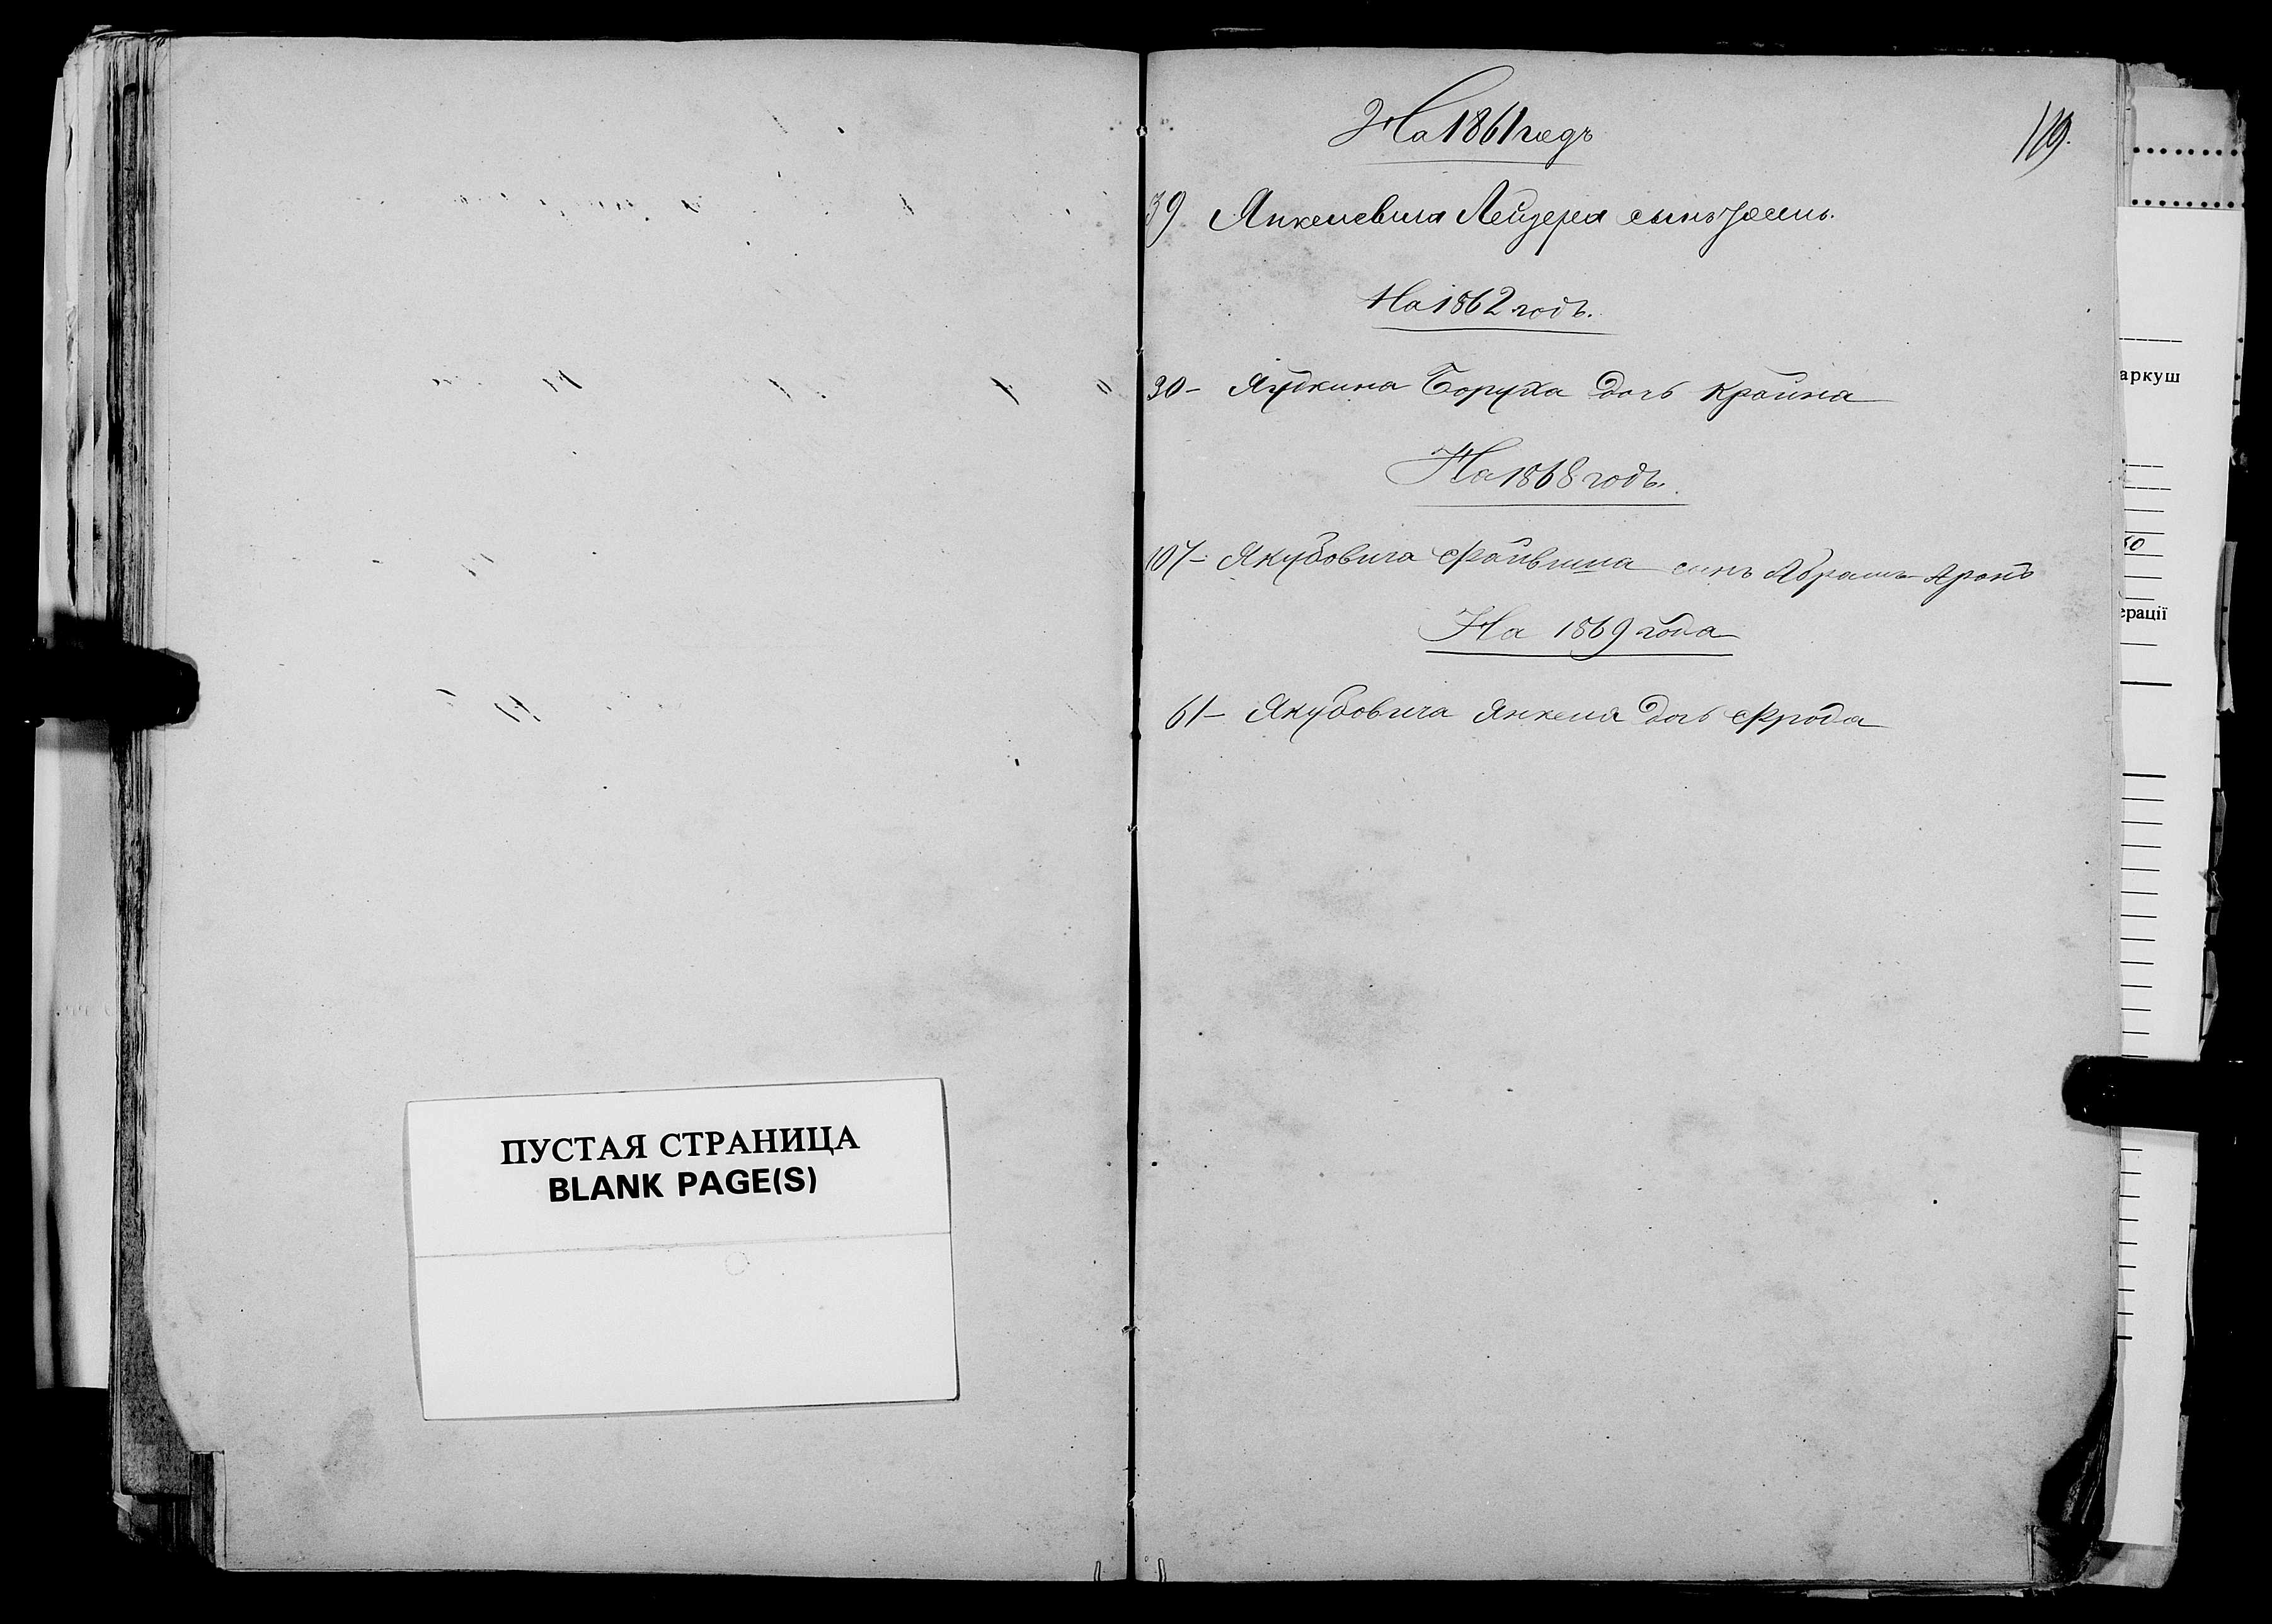 ПУСТАЯ СТРАНИЦА
BLANK PAGE(S)
119.
На 1861 годъ
39 Янкелевича Лейзера сынъ
На 1862 годъ.
30 – Яудкина Боруха дочь Крайна
На 1868 годъ.
107 – Якубовича Файвиша сынъ Абрамъ Аронъ
На 1869 года
61 – Якубовича Янкеля дочь Фрода
аркуш
ерації